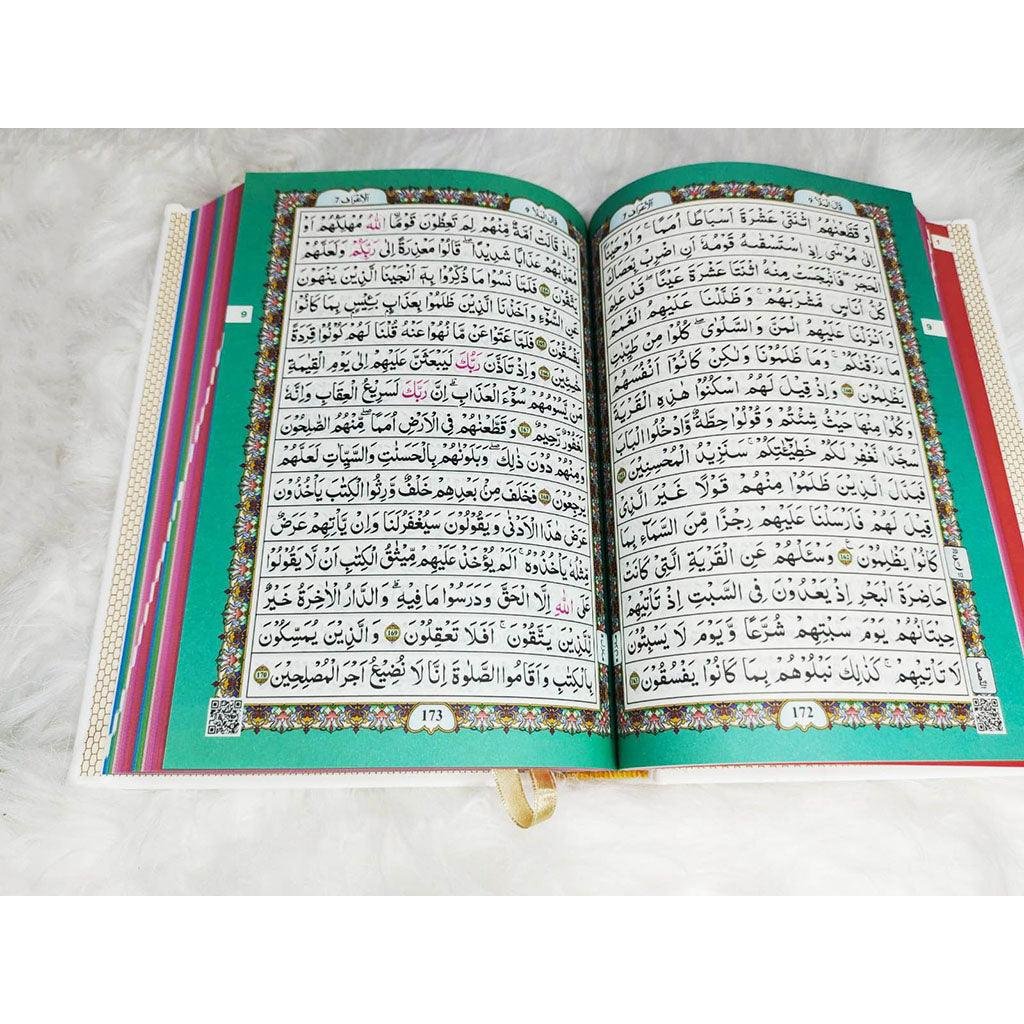 قَالَ الْمَلَاُ 9
اَلْاَعْرَاف 7
وَ قَطَّعْنٰهُمُ اثْنَتَيْ عَشْرَةَ اَسْبَاطًا اُمَمًا ؕ وَ اَوْحَيْنَاۤ
اِلٰى مُوْسٰۤى اِذِ اسْتَسْقٰىهُ قَوْمُهٗۤ اَنِ اضْرِبْ بِّعَصَاكَ
الْحَجَرَ ۚ فَانْۢبَجَسَتْ مِنْهُ اثْنَتَا عَشْرَةَ عَيْنًا ؕ قَدْ عَلِمَ
كُلُّ اُنَاسٍ مَّشْرَبَهُمْ ؕ وَ ظَلَّلْنَا عَلَيْهِمُ الْغَمَامَ
وَ اَنْزَلْنَا عَلَيْهِمُ الْمَنَّ وَ السَّلْوٰى ؕ كُلُوْا مِنْ طَيِّبٰتِ
مَا رَزَقْنٰكُمْ ؕ وَ مَا ظَلَمُوْنَا وَلٰكِنْ كَانُوْۤا اَنْفُسَهُمْ
يَظْلِمُوْنَ 160 وَ اِذْ قِيْلَ لَهُمُ اسْكُنُوْا هٰذِهِ الْقَرْيَةَ
وَ كُلُوْا مِنْهَا حَيْثُ شِئْتُمْ وَ قُوْلُوْا حِطَّةٌ وَّ ادْخُلُوا الْبَابَ
سُجَّدًا نَّغْفِرْ لَكُمْ خَطِيْٓـٰٔتِكُمْ ؕ سَنَزِيْدُ الْمُحْسِنِيْنَ 161
فَبَدَّلَ الَّذِيْنَ ظَلَمُوْا مِنْهُمْ قَوْلًا غَيْرَ الَّذِيْ
قِيْلَ لَهُمْ فَاَرْسَلْنَا عَلَيْهِمْ رِجْزًا مِّنَ السَّمَآءِ بِمَا
كَانُوْا يَظْلِمُوْنَ 162 وَسْـَٔلْهُمْ عَنِ الْقَرْيَةِ الَّتِيْ كَانَتْ
حَاضِرَةَ الْبَحْرِ ۘ اِذْ يَعْدُوْنَ فِي السَّبْتِ اِذْ تَاْتِيْهِمْ
حِيْتَانُهُمْ يَوْمَ سَبْتِهِمْ شُرَّعًا وَّ يَوْمَ لَا يَسْبِتُوْنَ ۙ
لَا تَاْتِيْهِمْ ۚ كَذٰلِكَ نَبْلُوْهُمْ بِمَا كَانُوْا يَفْسُقُوْنَ 163
النصف
172
9
1
قَالَ الْمَلَاُ 9
اَلْاَعْرَاف 7
وَ اِذْ قَالَتْ اُمَّةٌ مِّنْهُمْ لِمَ تَعِظُوْنَ قَوْمَا ۙ اللّٰهُ مُهْلِكُهُمْ اَوْ
مُعَذِّبُهُمْ عَذَابًا شَدِيْدًا ؕ قَالُوْا مَعْذِرَةً اِلٰى رَبِّكُمْ وَ لَعَلَّهُمْ
يَتَّقُوْنَ 164 فَلَمَّا نَسُوْا مَا ذُكِّرُوْا بِهٖۤ اَنْجَيْنَا الَّذِيْنَ يَنْهَوْنَ
عَنِ السُّوْٓءِ وَ اَخَذْنَا الَّذِيْنَ ظَلَمُوْا بِعَذَابٍۭ بَـِٔيْسٍۭ بِمَا كَانُوْا
يَفْسُقُوْنَ 165 فَلَمَّا عَتَوْا عَنْ مَّا نُهُوْا عَنْهُ قُلْنَا لَهُمْ كُوْنُوْا قِرَدَةً
خٰسِـِٕيْنَ 166 وَ اِذْ تَاَذَّنَ رَبُّكَ لَيَبْعَثَنَّ عَلَيْهِمْ اِلٰى يَوْمِ الْقِيٰمَةِ
مَنْ يَّسُوْمُهُمْ سُوْٓءَ الْعَذَابِ ؕ اِنَّ رَبَّكَ لَسَرِيْعُ الْعِقَابِ ۖ وَ اِنَّهٗ
لَغَفُوْرٌ رَّحِيْمٌ 167 وَ قَطَّعْنٰهُمْ فِي الْاَرْضِ اُمَمًا ۚ مِنْهُمُ الصّٰلِحُوْنَ
وَ مِنْهُمْ دُوْنَ ذٰلِكَ ؗ وَ بَلَوْنٰهُمْ بِالْحَسَنٰتِ وَ السَّيِّاٰتِ لَعَلَّهُمْ
يَرْجِعُوْنَ 168 فَخَلَفَ مِنْۢ بَعْدِهِمْ خَلْفٌ وَّرِثُوا الْكِتٰبَ يَاْخُذُوْنَ
عَرَضَ هٰذَا الْاَدْنٰى وَ يَقُوْلُوْنَ سَيُغْفَرُ لَنَا ۚ وَ اِنْ يَّاْتِهِمْ عَرَضٌ
مِّثْلُهٗ يَاْخُذُوْهُ ؕ اَلَمْ يُؤْخَذْ عَلَيْهِمْ مِّيْثَاقُ الْكِتٰبِ اَنْ لَّا يَقُوْلُوْا
عَلَى اللّٰهِ اِلَّا الْحَقَّ وَ دَرَسُوْا مَا فِيْهِ ؕ وَ الدَّارُ الْاٰخِرَةُ خَيْرٌ
لِّلَّذِيْنَ يَتَّقُوْنَ ؕ اَفَلَا تَعْقِلُوْنَ 169 وَ الَّذِيْنَ يُمَسِّكُوْنَ
بِالْكِتٰبِ وَ اَقَامُوا الصَّلٰوةَ ؕ اِنَّا لَا نُضِيْعُ اَجْرَ الْمُصْلِحِيْنَ 170
173
9